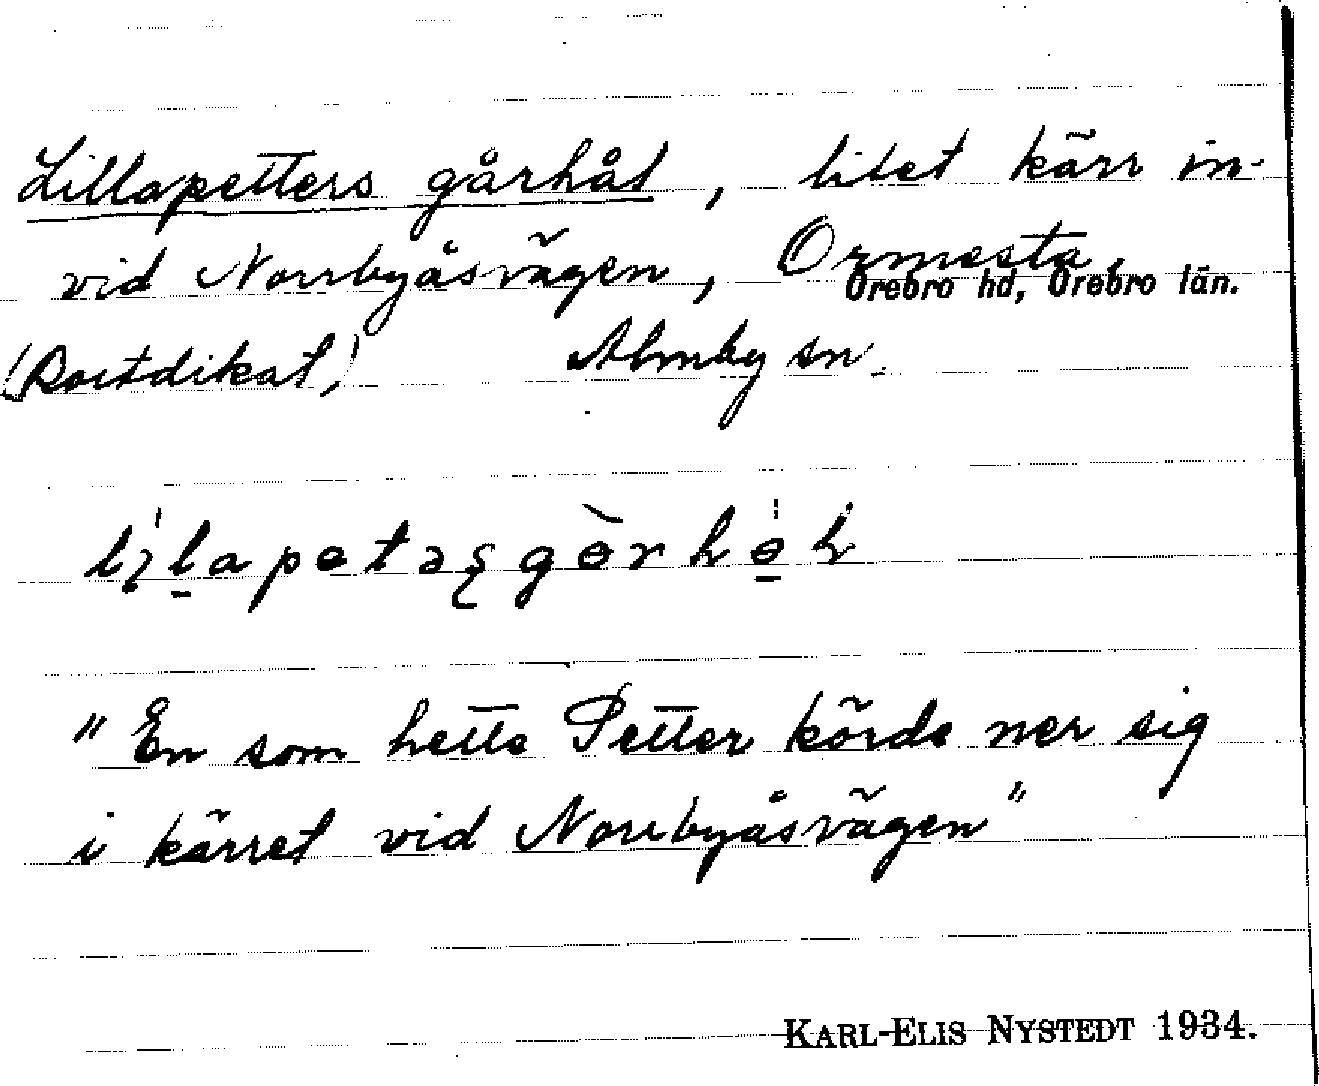 Lillapetters gårhål, litet kärr in-
vid Norrbyåsvägen, Ormesta,
Örebro hd, Örebro län.
(Bortdikat) Almby sn.
"En som hette Petter körde ner sig
i kärret vid Norrbyåsvägen"
KARL-ELIS NYSTEDT 1934.